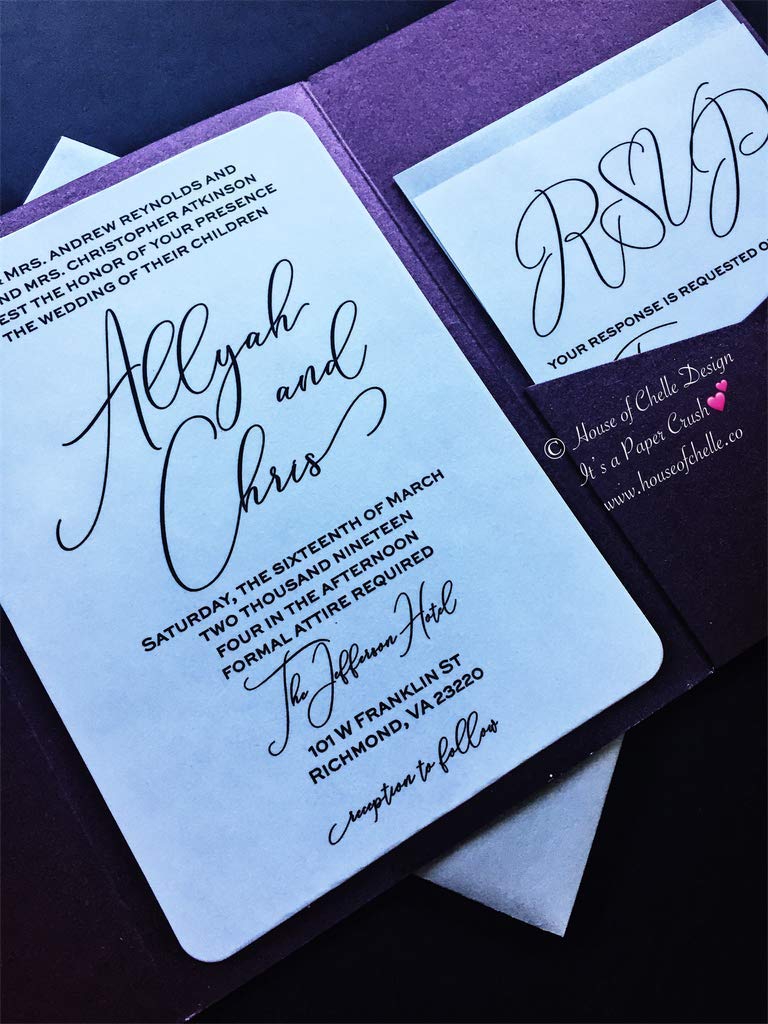 MRS. ANDREW REYNOLDS AND
ND MRS. CHRISTOPHER ATKINSON
EST THE HONOR OF YOUR PRESENCE
THE WEDDING OF THEIR CHILDREN
Allyah
and
Chris
SATURDAY, THE SIXTEENTH OF MARCH
TWO THOUSAND NINETEEN
FOUR IN THE AFTERNOON
FORMAL ATTIRE REQUIRED
The Jefferson Hotel
101 W FRANKLIN ST
RICHMOND, VA 23220
reception to follow
RSVP
YOUR RESPONSE IS REQUESTED O
© House of Chelle Design
It's a Paper Crush💕
www.houseofchelle.co